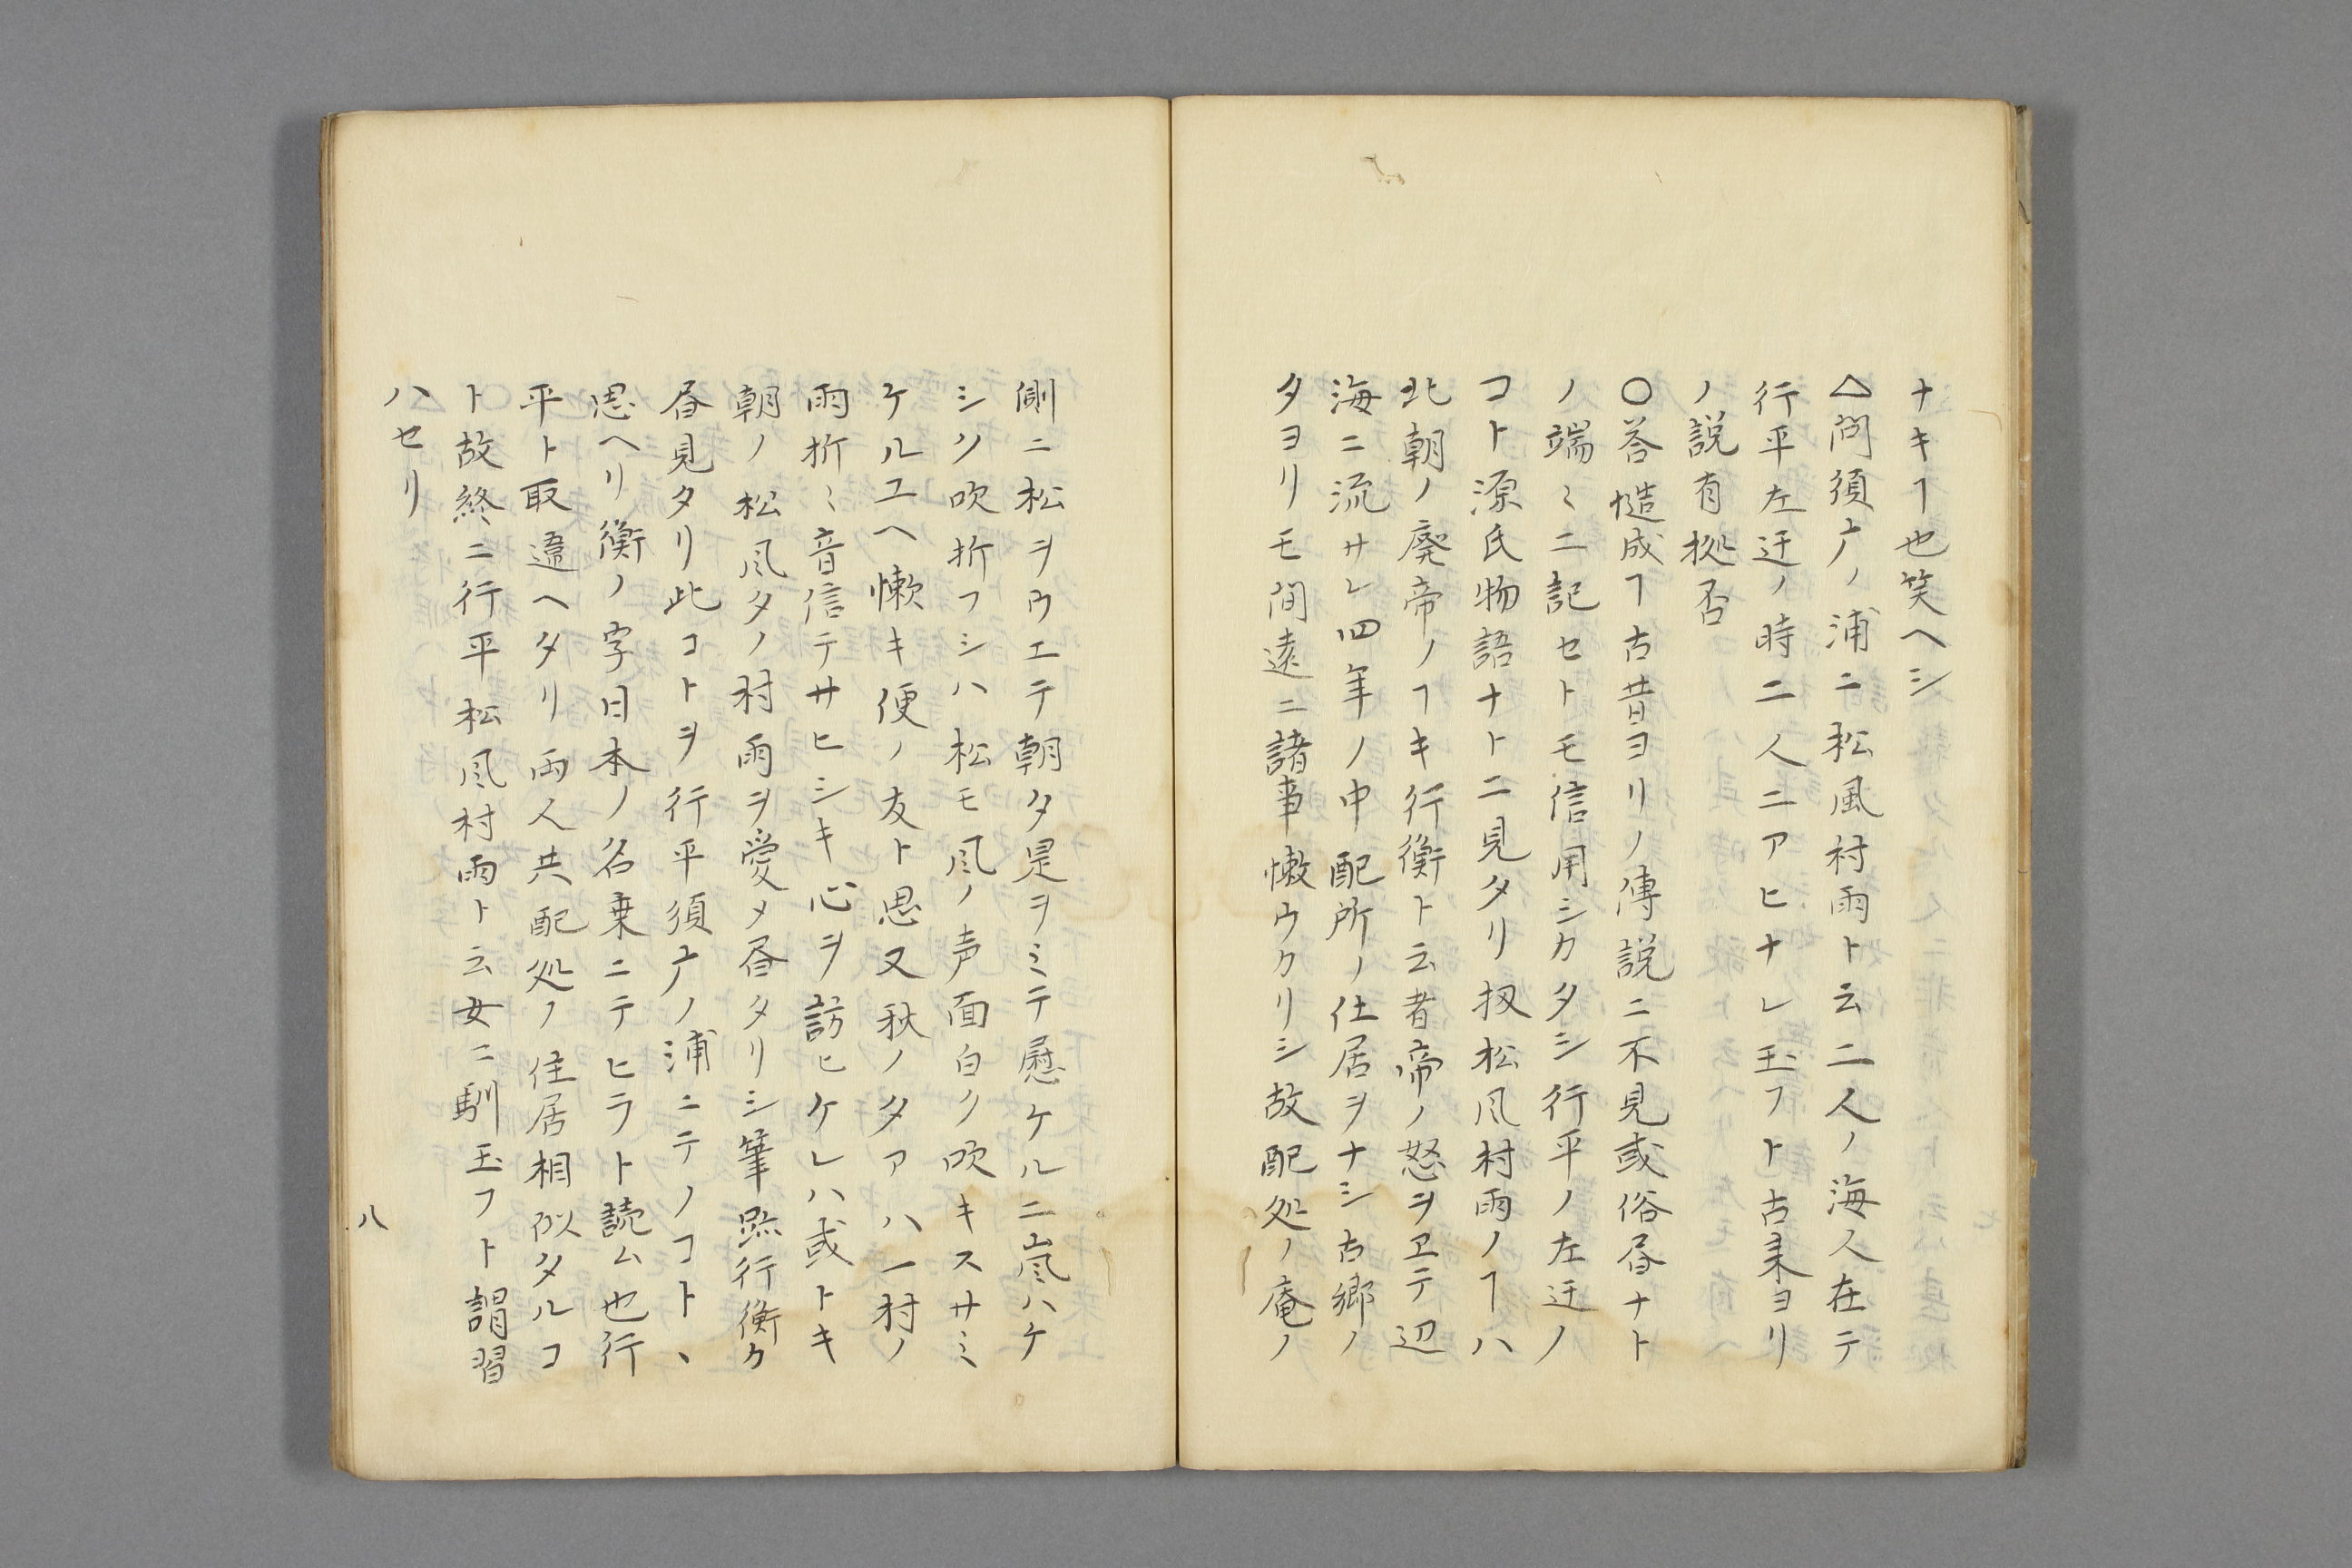 ナキヿ也笑ヘシ
△問須广ノ浦ニ松風村雨ト云二人ノ海人在テ
行平左迁ノ時二人ニアヒナレ玉フト古来ヨリ
ノ説有拠否
○答慥成ヿ古昔ヨリノ傳説ニ不見或俗昏ナト
ノ端〻ニ記セトモ信用シカタシ行平ノ左迁ノ
コト源氏物語ナトニ見タリ扨松凬村雨ノヿハ
北朝ノ廃帝ノヿキ行衡ト云者帝ノ怒ヲヱテ辺
海ニ流サレ四年ノ中配所ノ仕居ヲナシ古郷ノ
タヨリモ間遠ニ諸事懒ウクリシ故配処ノ庵ノ
側ニ松ヲウエテ朝夕是ヲミテ慰ケルニ嵐ハケ
シク吹折フシハ松モ凬ノ声面白ク吹キスサミ
ケルユヘ懒キ便ノ友ト思又秋ノ夕アハ一村ノ
雨折〻音信テサヒシキ心ヲ訪ヒケレハ或トキ
朝ノ松凬夕ノ村雨ヲ愛メ昏タリシ筆跡行衡ク
昏見タリ此コトヲ行平須广ノ浦ニテノコトヽ
思ヘリ衡ノ字日本ノ名乗ニテヒラト読ム也行
平ト取違ヘタリ両人共配処ノ住居相似タルコ
ト故終ニ行平松凬村雨ト云女ニ馴玉フト謂習
ハセリ
八